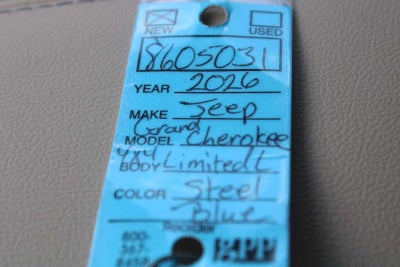 NEW USED
8605031
YEAR 2026
MAKE Jeep
Grand
MODEL Cherokee
4x4
BODY Limited L
COLOR Steel
Blue
800-
367-